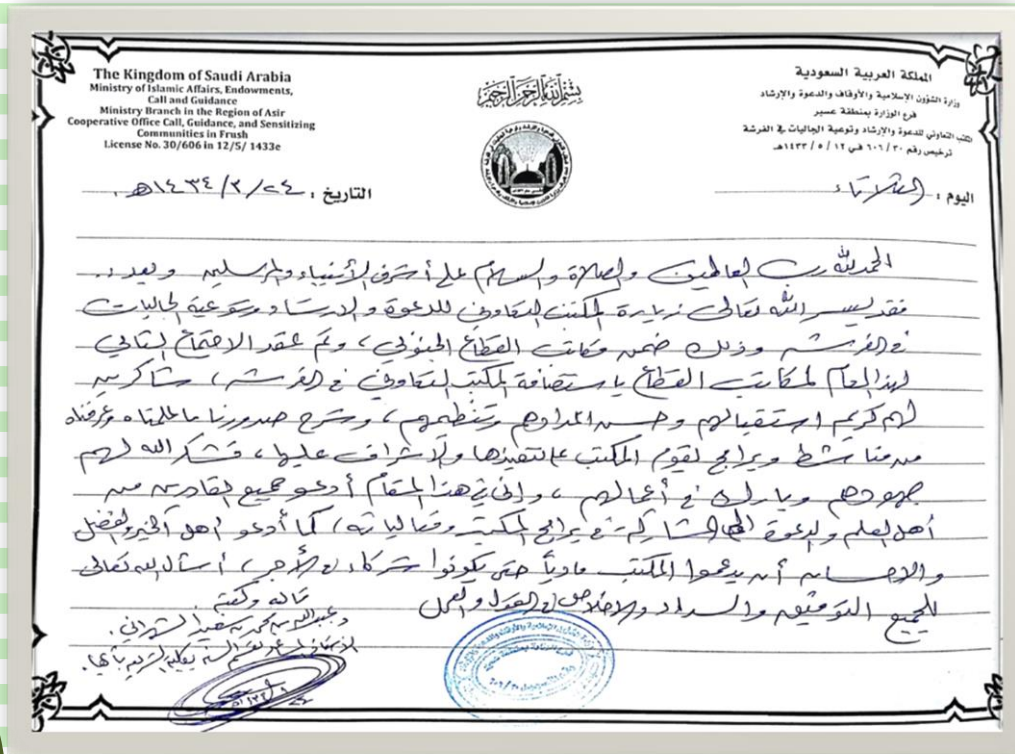 The Kingdom of Saudi Arabia
Ministry of Islamic Affairs, Endowments,
Call and Guidance
Ministry Branch in the Region of Asir
Cooperative Office Call, Guidance, and Sensitizing
Communities in Frush
License No. 30/606 in 12/5/ 1433e
بسم الله الرحمن الرحيم
المملكة العربية السعودية
وزارة الشؤون الإسلامية والأوقاف والدعوة والإرشاد
فرع الوزارة بمنطقة عسير
المكتب التعاوني للدعوة والإرشاد وتوعية الجاليات في الفرشة
ترخيص رقم ٦٠٦/٣٠ في ١٢ / ٥ / ١٤٣٣هـ
اليوم : الثلاثاء
التاريخ : ٢٤/٢/١٤٣٤هـ
الحمد لله رب العالمين والصلاة والسلام على أشرف الأنبياء والمرسلين وبعد ..
فقد يسر الله تعالى زيارة المكتب التعاوني للدعوة والارشاد وتوعية الجاليات
في الفرشه وذلك ضمن مكاتب القطاع الجنوبي ، وتم عقد الاجتماع الثاني
لهذا العام لمكاتب القطاع باستضافة المكتب التعاوني في الفرشه ، شاكرين
لهم كريم استقبالهم وحسن اعدادهم وتنظيمهم ، وشرح صدورنا ما علمناه وعرفناه
من مناشط وبرامج يقوم المكتب على تنفيذها والاشراف عليها ، فشكر الله لهم
جهودهم وبارك في أعمالهم ، وإني في هذا المقام أدعو جميع القادرين من
أهل العلم والدعوة المشاركة في برامج المكتب وفعالياته ، كما أدعو أهل الخير والفضل
والاحسان أن يدعموا المكتب مادياً حتى يكونوا شركاء في الأجر ، أسأل الله تعالى
للجميع التوفيق والسداد والاخلاص في القول والعمل
قاله وكتبه
د. عبدالله بن محمد بن سعيد الشهراني .